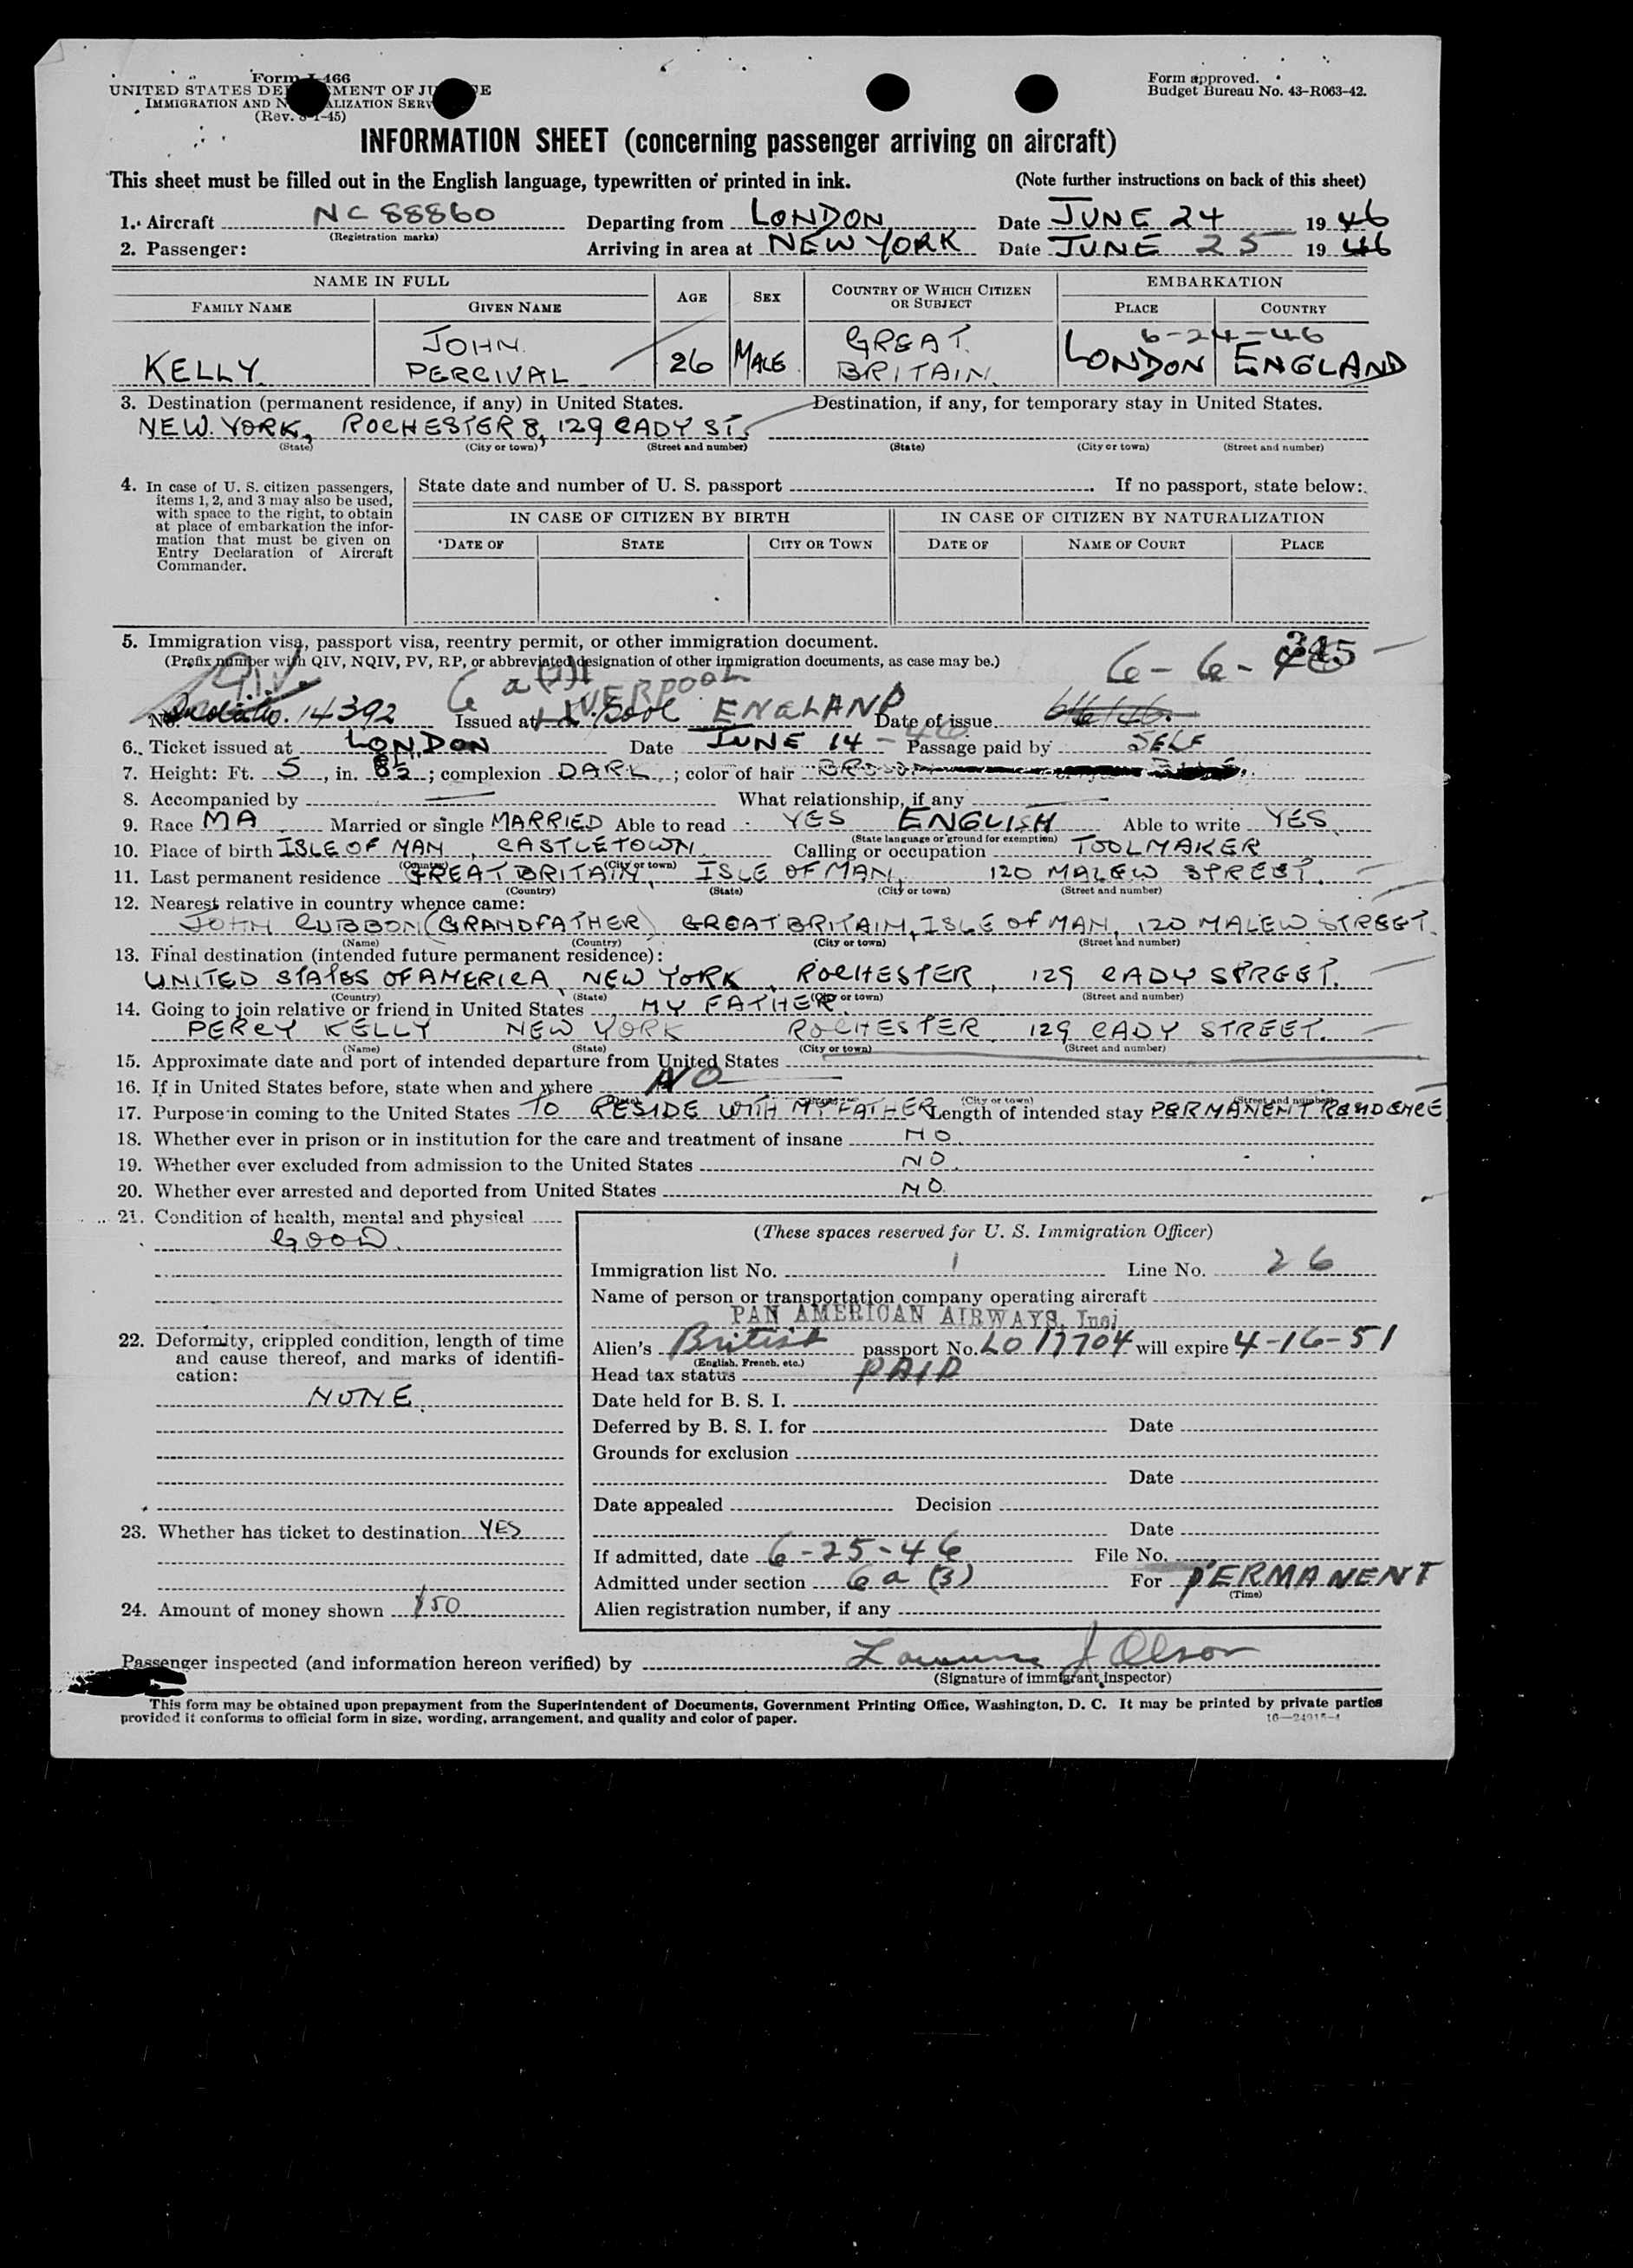 Form I-466
UNITED STATES DEPARTMENT OF JUSTICE
IMMIGRATION AND NATURALIZATION SERVICE
(Rev. 8-1-45)
Form approved.
Budget Bureau No. 43-R063-42.
INFORMATION SHEET (concerning passenger arriving on aircraft)
This sheet must be filled out in the English language, typewritten or printed in ink. (Note further instructions on back of this sheet)
1. Aircraft NC 88860 Departing from LONDON Date JUNE 24 1946
(Registration marks)
2. Passenger: Arriving in area at NEW YORK Date JUNE 25 1946
NAME IN FULL AGE SEX COUNTRY OF WHICH CITIZEN OR SUBJECT EMBARKATION
FAMILY NAME GIVEN NAME PLACE COUNTRY
6-24-46
KELLY JOHN PERCIVAL 26 MALE GREAT BRITAIN LONDON ENGLAND
3. Destination (permanent residence, if any) in United States. Destination, if any, for temporary stay in United States.
NEW YORK, ROCHESTER 8, 129 CADY ST.
(State) (City or town) (Street and number) (State) (City or town) (Street and number)
4. In case of U. S. citizen passengers, items 1, 2, and 3 may also be used, with space to the right, to obtain at place of embarkation the information that must be given on Entry Declaration of Aircraft Commander.
State date and number of U. S. passport If no passport, state below:
IN CASE OF CITIZEN BY BIRTH IN CASE OF CITIZEN BY NATURALIZATION
DATE OF STATE CITY OR TOWN DATE OF NAME OF COURT PLACE
5. Immigration visa, passport visa, reentry permit, or other immigration document.
345
(Prefix number with QIV, NQIV, PV, RP, or abbreviated designation of other immigration documents, as case may be.)
QIV 6 a (3) LIVERPOOL 6-6-46
No. 14392 Issued at ENGLAND Date of issue 6/6/46.
6. Ticket issued at LONDON Date JUNE 14-46 Passage paid by SELF
7. Height: Ft. 5, in. 8½; complexion DARK; color of hair BROWN
8. Accompanied by — What relationship, if any —
9. Race MA Married or single MARRIED Able to read YES ENGLISH Able to write YES
(State language or ground for exemption)
10. Place of birth ISLE OF MAN, CASTLETOWN Calling or occupation TOOLMAKER
(Country) (City or town)
11. Last permanent residence GREAT BRITAIN, ISLE OF MAN, 120 MALEW STREET.
(Country) (State) (City or town) (Street and number)
12. Nearest relative in country whence came:
JOHN CUBBON (GRANDFATHER) GREAT BRITAIN, ISLE OF MAN, 120 MALEW STREET.
(Name) (Country) (City or town) (Street and number)
13. Final destination (intended future permanent residence):
UNITED STATES OF AMERICA, NEW YORK, ROCHESTER, 129 CADY STREET.
(Country) (State) (City or town) (Street and number)
14. Going to join relative or friend in United States MY FATHER.
PERCY KELLY NEW YORK ROCHESTER 129 CADY STREET.
(Name) (State) (City or town) (Street and number)
15. Approximate date and port of intended departure from United States
16. If in United States before, state when and where NO
(City or town) (Street and number)
17. Purpose in coming to the United States TO RESIDE WITH MY FATHER Length of intended stay PERMANENT RESIDENCE
18. Whether ever in prison or in institution for the care and treatment of insane NO.
19. Whether ever excluded from admission to the United States NO.
20. Whether ever arrested and deported from United States NO.
21. Condition of health, mental and physical
GOOD.
22. Deformity, crippled condition, length of time and cause thereof, and marks of identification:
NONE.
23. Whether has ticket to destination YES
24. Amount of money shown $50
(These spaces reserved for U. S. Immigration Officer)
Immigration list No. 1 Line No. 26
Name of person or transportation company operating aircraft
PAN AMERICAN AIRWAYS, Inc.
Alien's British passport No. LO 17704 will expire 4-16-51
(English, French, etc.)
Head tax status PAID
Date held for B. S. I.
Deferred by B. S. I. for Date
Grounds for exclusion
Date
Date appealed Decision
Date
If admitted, date 6-25-46 File No.
Admitted under section 6 a (3) For PERMANENT
(Time)
Alien registration number, if any
Passenger inspected (and information hereon verified) by J Olson
(Signature of immigrant inspector)
This form may be obtained upon prepayment from the Superintendent of Documents, Government Printing Office, Washington, D. C. It may be printed by private parties
provided it conforms to official form in size, wording, arrangement, and quality and color of paper.
16—24915-1